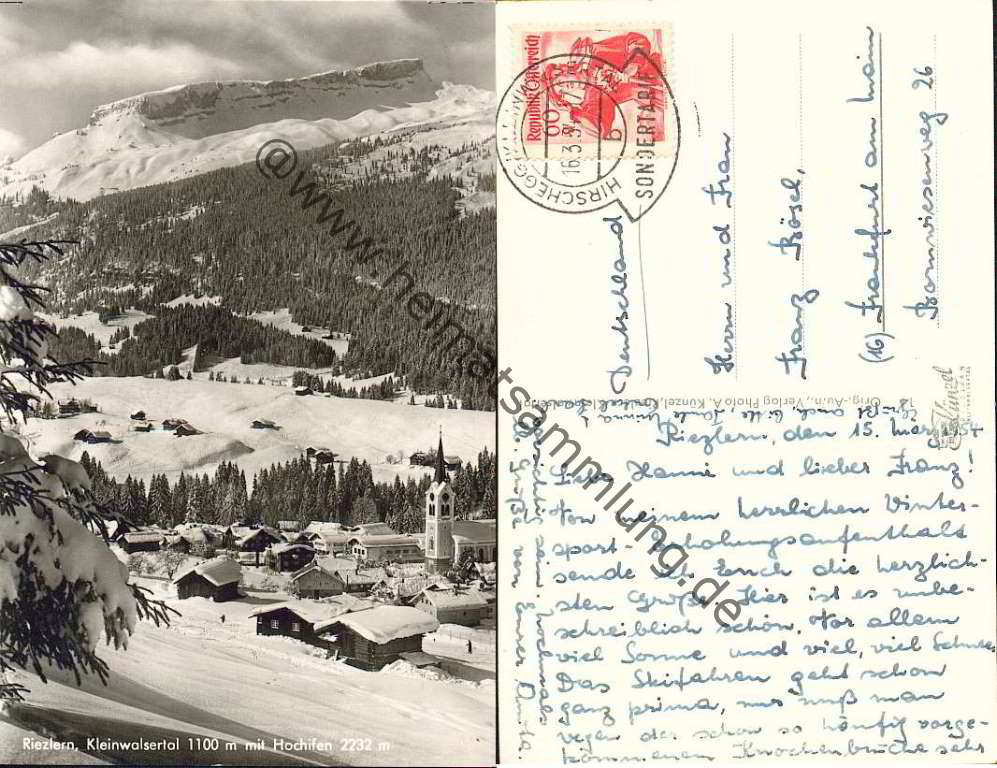 Riezlern, Kleinwalsertal 1100 m mit Hochifen 2232 m
@www.heimatsammlung.de
Republik Österreich
60
16.3.57
b
HIRSCHEGG
SONDERTARIF
Deutschland
Herrn und Frau
Franz Bösel,
(16) Frankfurt am Main
Bornwiesenweg 26
Orig.-Aufn., Verlag Photo A. Künzel,
Künzel
Riezlern, den 15. März 57
Liebe Hanni und lieber Franz!
Von meinem herrlichen Winter-
sport-Erholungsaufenthalt
sende ich Euch die herzlich-
sten Grüße. Hier ist es unbe-
schreiblich schön. Vor allem
viel Sonne und viel, viel Schnee.
Das Skifahren geht schon
ganz prima, nur muß man
wegen der schon so häufig vorge-
kommenen Knochenbrüche sehr
vorsichtig sein. Nochmals
Grüße von Eurer Anita.